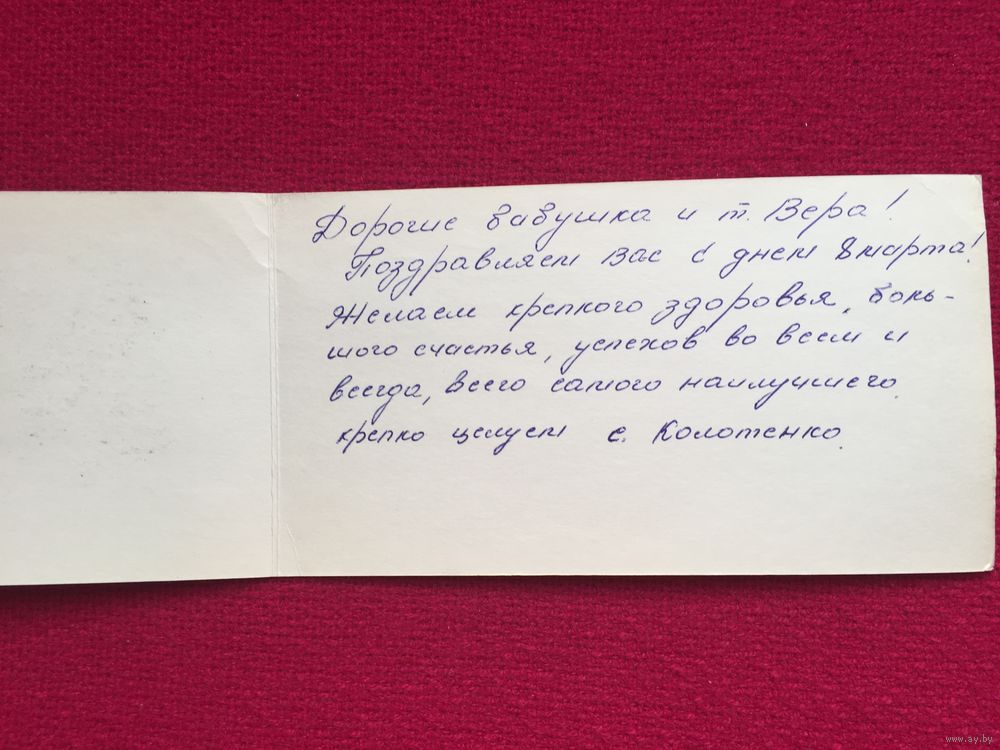 Дорогие бабушка и т. Вера!
Поздравляем Вас с днем 8 марта!
Желаем крепкого здоровья, боль-
шого счастья, успехов во всем и
всегда, всего самого наилучшего.
крепко целуем с. Колотенко.
www.ay.by